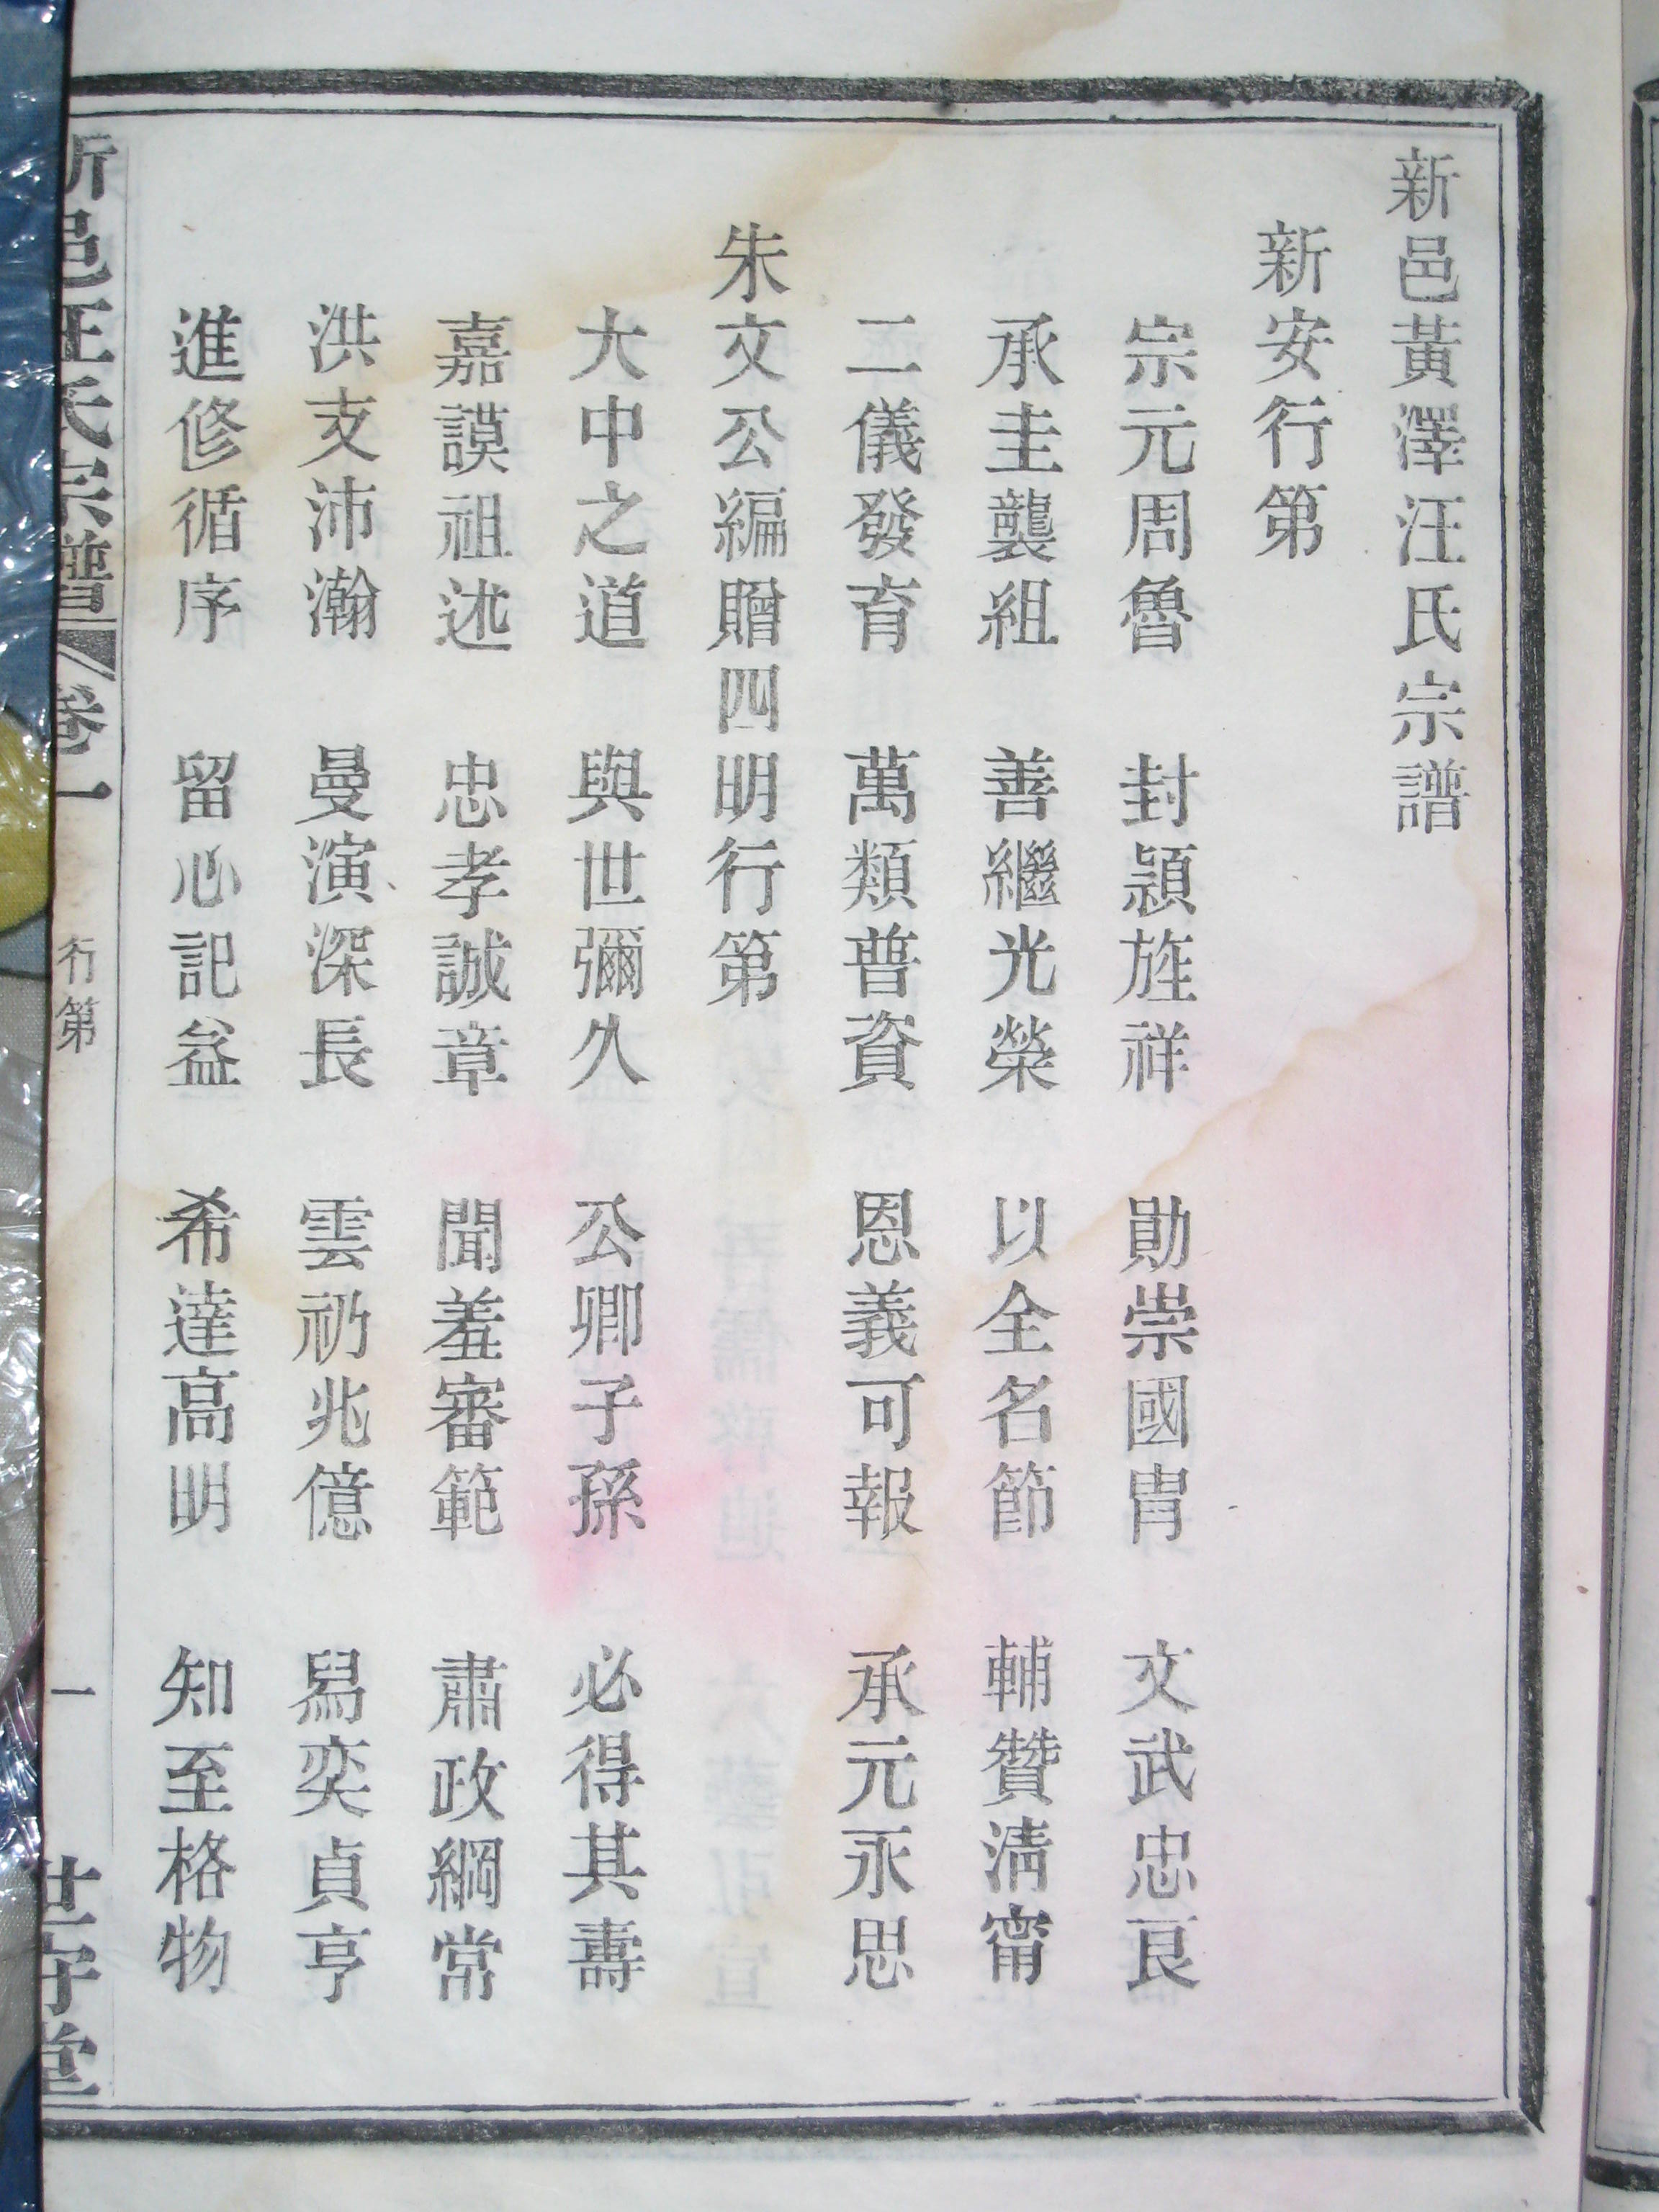 新邑黃澤汪氏宗譜
新安行第
宗元周魯 封潁旌祥 勛崇國胄 文武忠良
承圭襲組 善繼光榮 以全名節 輔贊淸甯
二儀發育 萬類普資 恩義可報 承元永思
朱文公編贈四明行第
大中之道 與世彌久 公卿子孫 必得其壽
嘉謨祖述 忠孝誠章 聞羞審範 肅政綱常
洪支沛瀚 曼演深長 雲礽兆億 舄奕貞亨
進修循序 留心記益 希達高明 知至格物
新邑汪氏宗譜 卷一 行第 一 世守堂